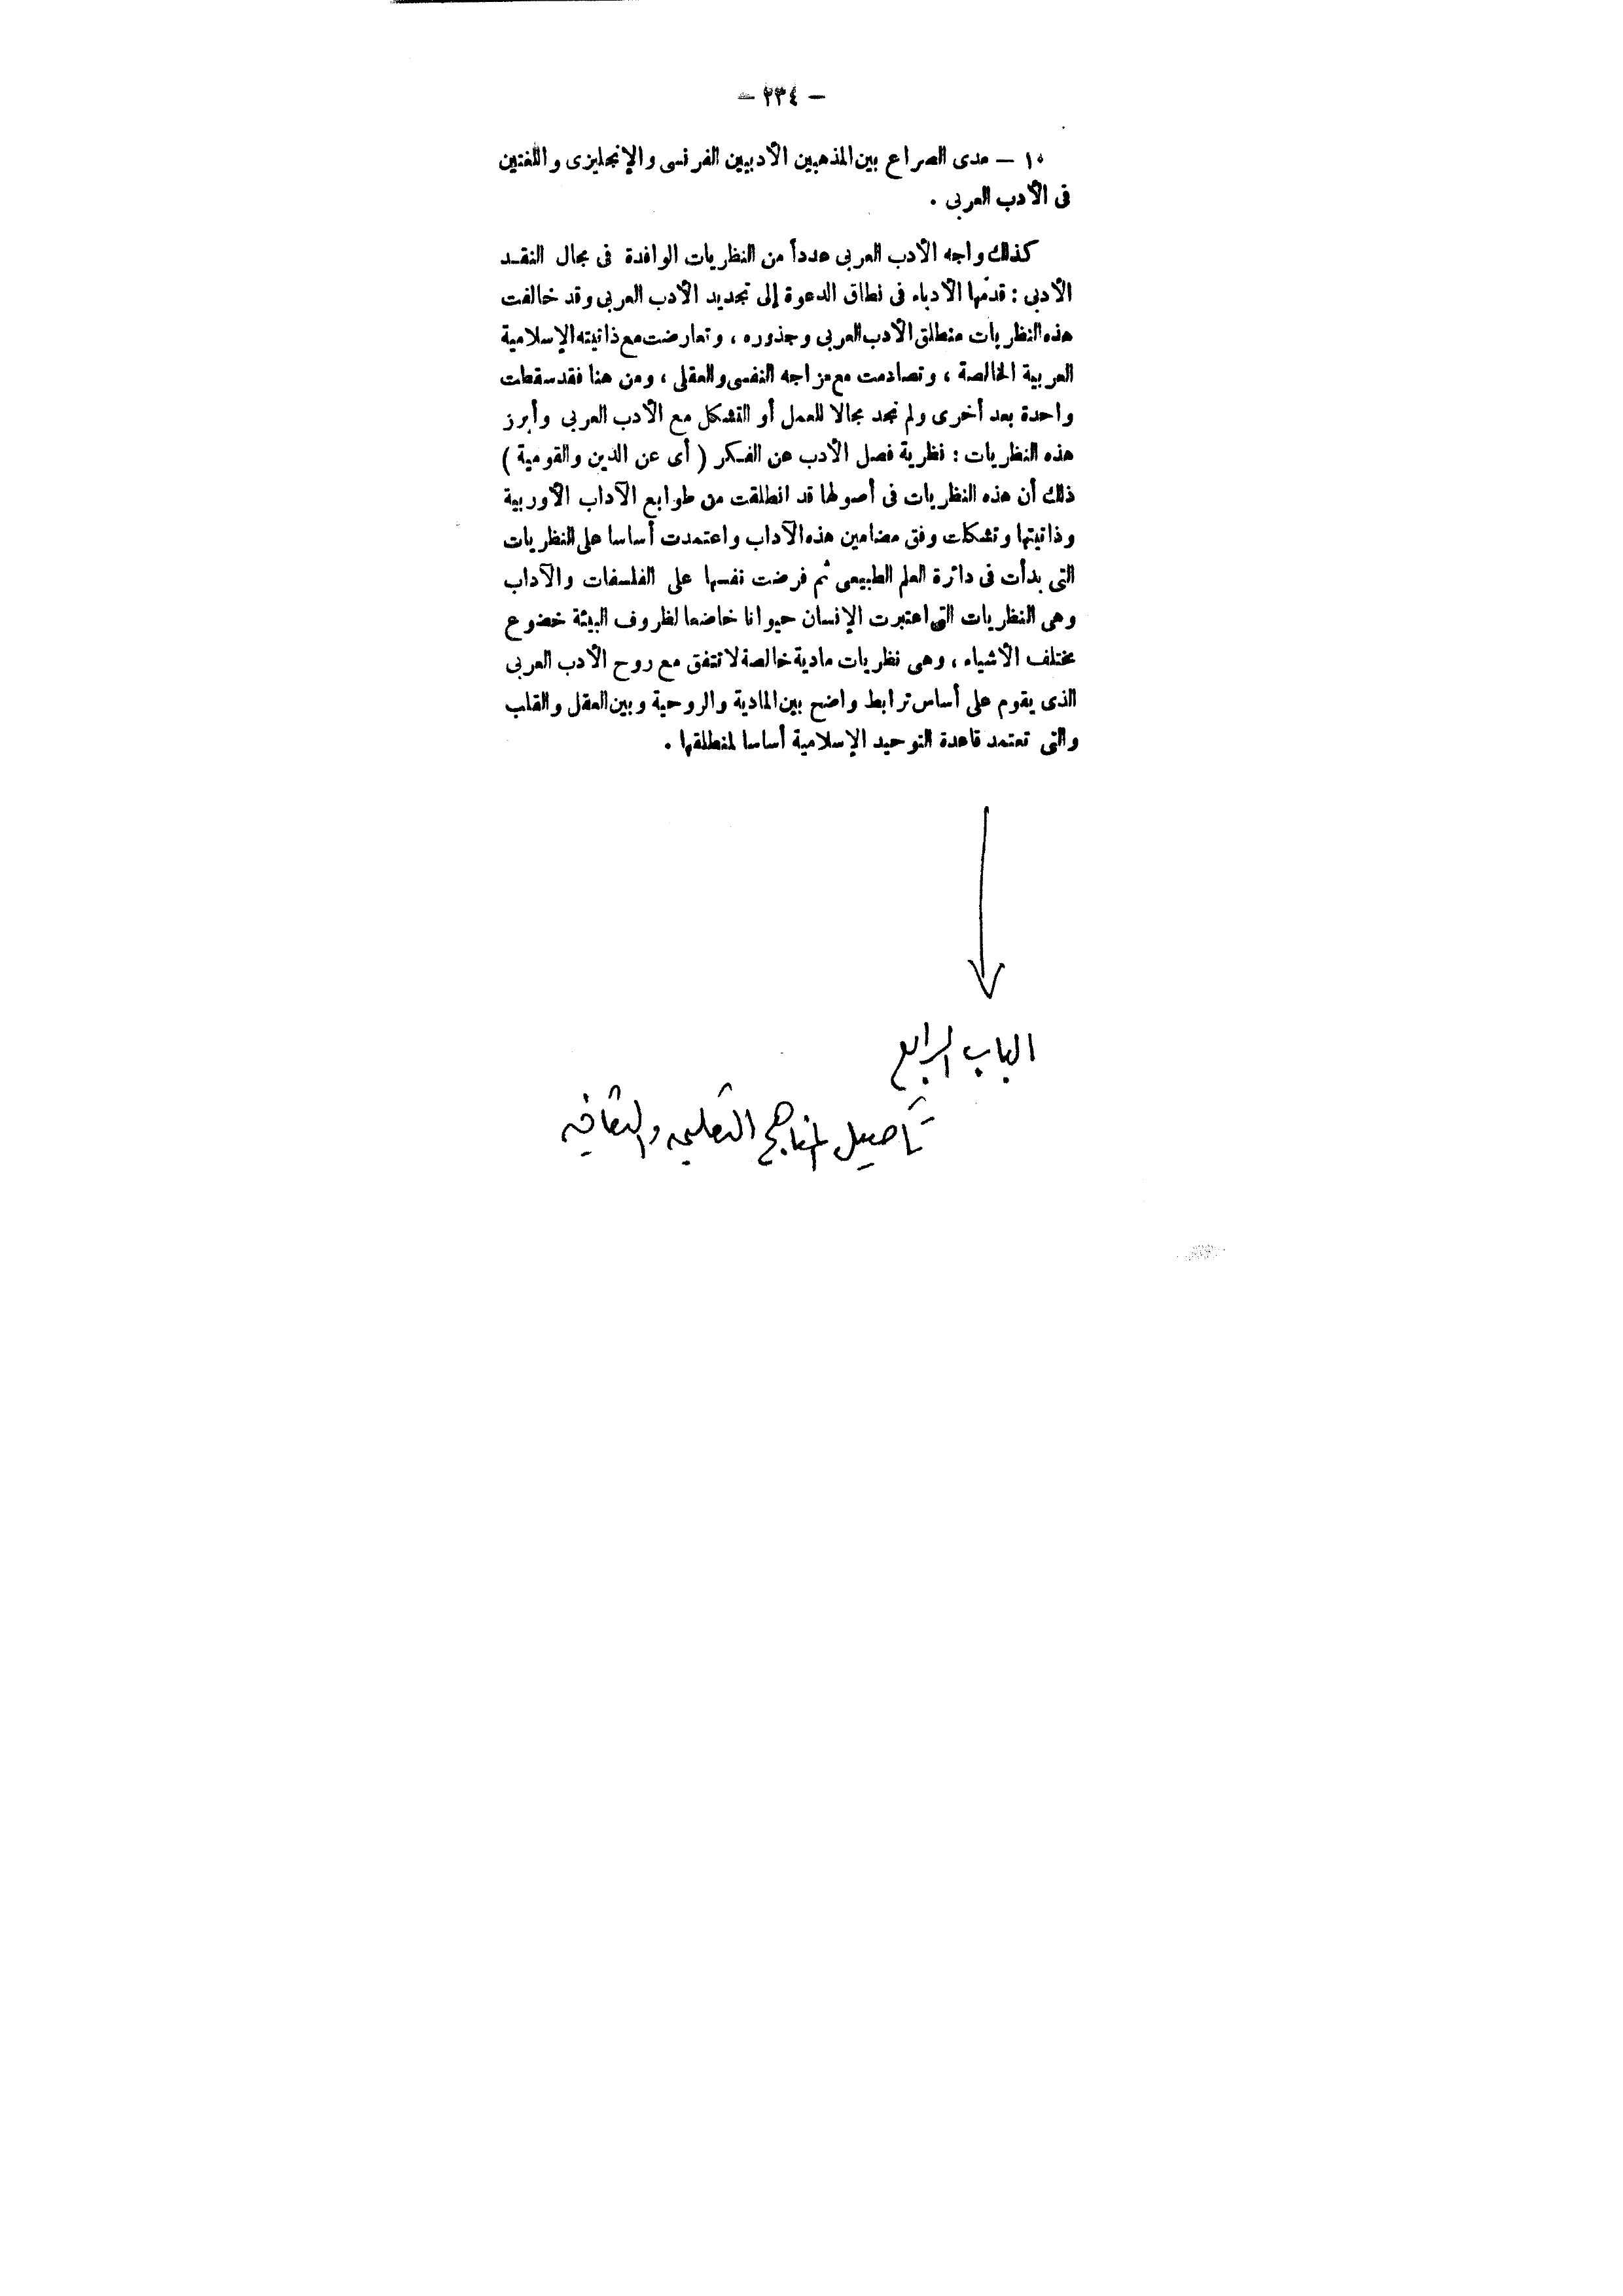 — ٢٣٤ —
١٠ — مدى الصراع بين المذهبين الأدبيين الفرنسى والإنجليزى واللغتين
فى الأدب العربى .
كذلك واجه الأدب العربى عدداً من النظريات الوافدة فى مجال النقد
الأدبى : قدمّها الأدباء فى نطاق الدعوة إلى تجديد الأدب العربى وقد خالفت
هذه النظريات منطلق الأدب العربى وجذوره ، وتعارضت مع ذاتيته الإسلامية
العربية الخالصة ، وتصادمت مع مزاجه النفسى والعقلى ، ومن هنا فقد سقطت
واحدة بعد أخرى ولم تجد مجالا للعمل أو التشكل مع الأدب العربى وأبرز
هذه النظريات : نظرية فصل الأدب عن الفكر ( أى عن الدين والقومية )
ذلك أن هذه النظريات فى أصولها قد انطلقت من طوابع الآداب الأوربية
وذاتيتها وتشكلت وفق مضامين هذه الآداب واعتمدت أساسا على النظريات
التى بدأت فى دائرة العلم الطبيعى ثم فرضت نفسها على الفلسفات والآداب
وهى النظريات التى اعتبرت الإنسان حيوانا خاضعا لظروف البيئة خضوع
مختلف الأشياء ، وهى نظريات مادية خالصة لا تتفق مع روح الأدب العربى
الذى يقوم على أساس ترابط واضح بين المادية والروحية وبين العقل والقلب
والتى تعتمد قاعدة التوحيد الإسلامية أساسا لمنطلقها .
الباب الرابع
تأصيل المناهج التعليميه والثقافيه